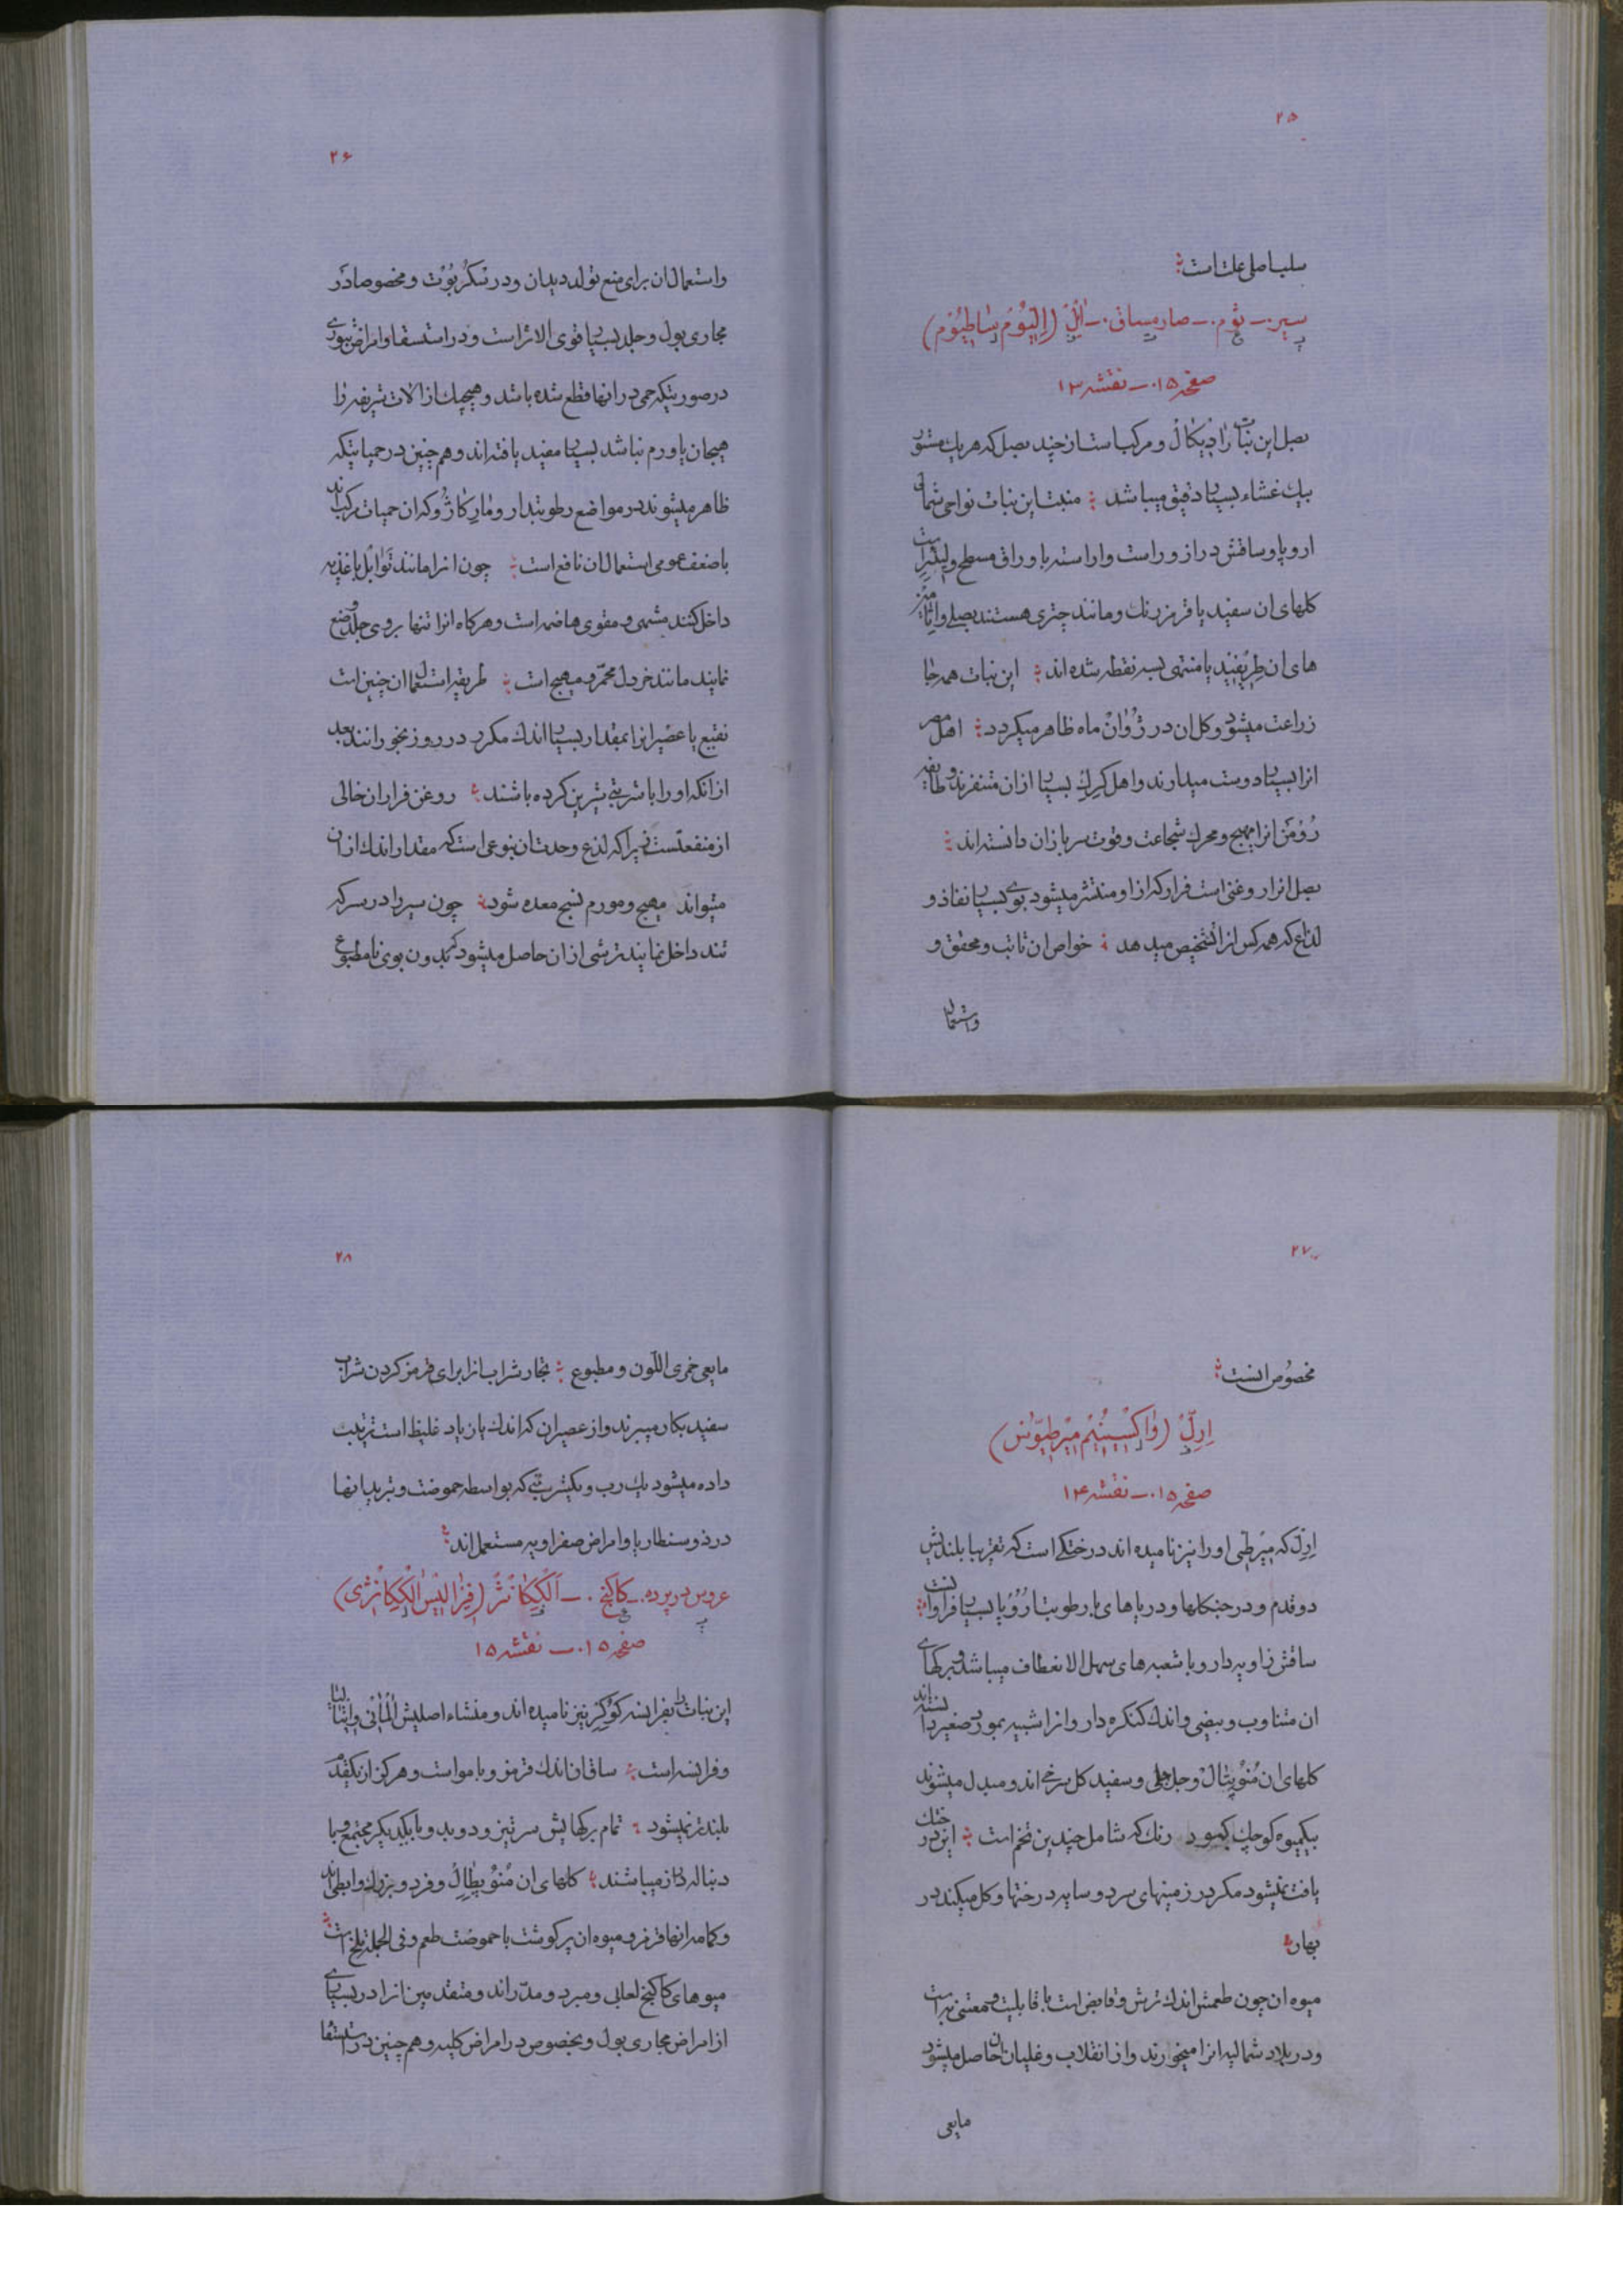 ۲۵
سلب اصل علت است
سیر - ثوم - صارمساق - ایل (الیوم ساطیوم)
صفحه ۱۵ - نقشه ۱۳
بصل این نبات رادیکال و مرکب است از چند بصل که هر یک مستور
بیک غشاء بسیار دقیق میباشد منبت این نبات نواحی شمالی
اروپا و ساقش دراز و راست و اراسته باوراق مسطح و
کلهای ان سفید یا قرمز رنک و مانند چتری هستند بصلی و
های ان طریفید یا منتهی بسه نقطه شده اند این نبات همه جا
زراعت میشود و کل ان در ژوان ماه ظاهر میکردد اهل مصر
انرا بسیار دوست میدارند و اهل کرک بسیار ازان متنفرند و طایفه
رومن انرا مهیج و محرک شجاعت و قوت سربازان دانسته اند
بصل انرا روغنی است فرار که از او منتشر میشود بوی بسیار نفاذ و
لذاع که همه کس انرا تشخیص میدهد خواص ان ثابت و محقق و
واستعمال
۲۶
واستعمال ان برای منع تولد دیدان و در سکربوت و مخصوصا در
مجاری بول و جلد بسیار قوی الاثر است و در استسقا و امراض
در صورتیکه حمی در انها قطع شده باشد و هیچیک از الات شریفه را
هیجان یا ورم نباشد بسیار مفید یافته اند و هم چنین در حمیاتیکه
ظاهر میشوند در مواضع رطوبتدار و مارکاژو که ان حمیات مرکب اند
با ضعف عمومی استعمال ان نافع است چون انرا مانند توابل باغذیه
داخل کنند مشهی و مقوی هاضمه است و هرکاه انرا تنها بروی جلد وضع
نمایند مانند خردل محمر و مهیج است طریقه استعمال ان چنین است
نقیع یا عصیر انرا بمقدار بسیار اندک مکرر در روز بخورانند بعد
از انکه او را با شربتی شیرین کرده باشند روغن فرار ان خالی
از منفعتست زیرا که لذع و حدت ان بنوعی است که مقدار اندک از ان
میتواند مهیج و مورم نسج معده شود چون سیر را در سرکه
تند داخل نمایند ترشی از ان حاصل میشود که بدون بوی نامطبوع
۲۷
مخصوص انست
ارل (واکسینیم میرطیوس)
صفحه ۱۵ - نقشه ۱۴
ارل که میرطی او را نیز نامیده اند درختکی است که تقریبا بلندیش
دو قدم و در جنکلها و دریاهای با رطوبت اروپا بسیار فراوانست
ساقش زاویه دار و با شعبه های سهل الانعطاف میباشد و برکهای
ان متناوب و بیضی و اندک کنکره دار و انرا شبیه بمورد صغیر دانسته اند
کلهای ان منوپتال و جلجلی و سفید کل سرخی اند و مبدل میشوند
بیکمیوه کوچک کبود رنک که شامل چندین تخم است این درختک
یافت نمیشود مکر در زمینهای سرد و سایه درختها و کل میکند در
بهار
میوه ان چون طعمش اندک ترش و قابض است با قابلیت و معتنی به است
و در بلاد شمالیه انرا میخورند و از انقلاب و غلیان ان حاصل میشود
مایعی
۲۸
مایعی خمری اللون و مطبوع تجار شراب انرا برای قرمز کردن شراب
سفید بکار میبرند و از عصیر ان که اندک یا زیاد غلیظ است ترتیب
داده میشود یک رب و یکشربتی که بواسطه حموضت و تبرید انها
در ذوسنطاریا و امراض صفراویه مستعمل اند
عروس در پرده - کاکنج - الککانژ (فیزالیس الککانژی)
صفحه ۱۵ - نقشه ۱۵
این نبات را بفرانسه کوکرز نیز نامیده اند و منشاء اصلیش المانی و ایتالیا
و فرانسه است ساق ان اندک قرمز و با مو است و هرکز از یکقدم
بلندتر نمیشود تمام برکهایش سر تیز و دو بدو با یکدیکر مجتمع و با
دنباله دراز میباشند کلهای ان منوپطال و فرد و بزرک و ابطی اند
و کاسه انها قرمز و میوه ان پر کوشت با حموضت طعم و فی الجمله تلخ است
میوهای کاکنج لعابی و مبرد و مدر اند و متقدمین انرا در بسیاری
از امراض مجاری بول و بخصوص در امراض کلیه و هم چنین در استسقا